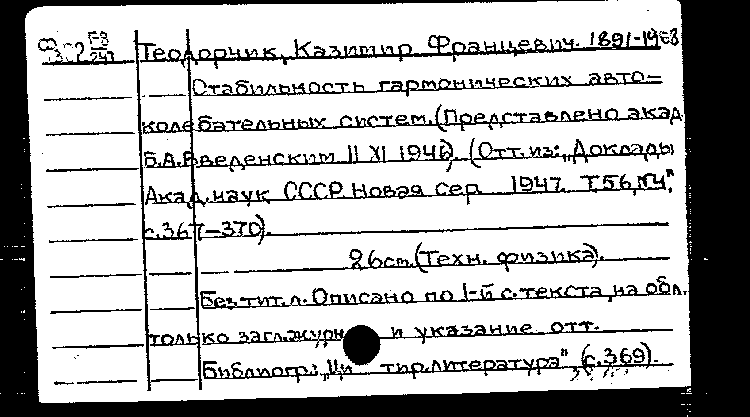 Теодорчик, Казимир Францевич. 1891-1968
Стабильность гармонических авто=
колебательных систем. (Представлено акад
Б.А.Введенским 11 XI 1946). (Отт.из: „Доклады
Акад. наук СССР. Новая сер. 1947. Т.56, №4",
с.367-370).
26 см. (Техн. физика).
Без тит. л. Описано по 1-й с. текста, на обл.
только загл. журн. и указание отт.
Библиогр.: „Ци тир. литература", (с.369).